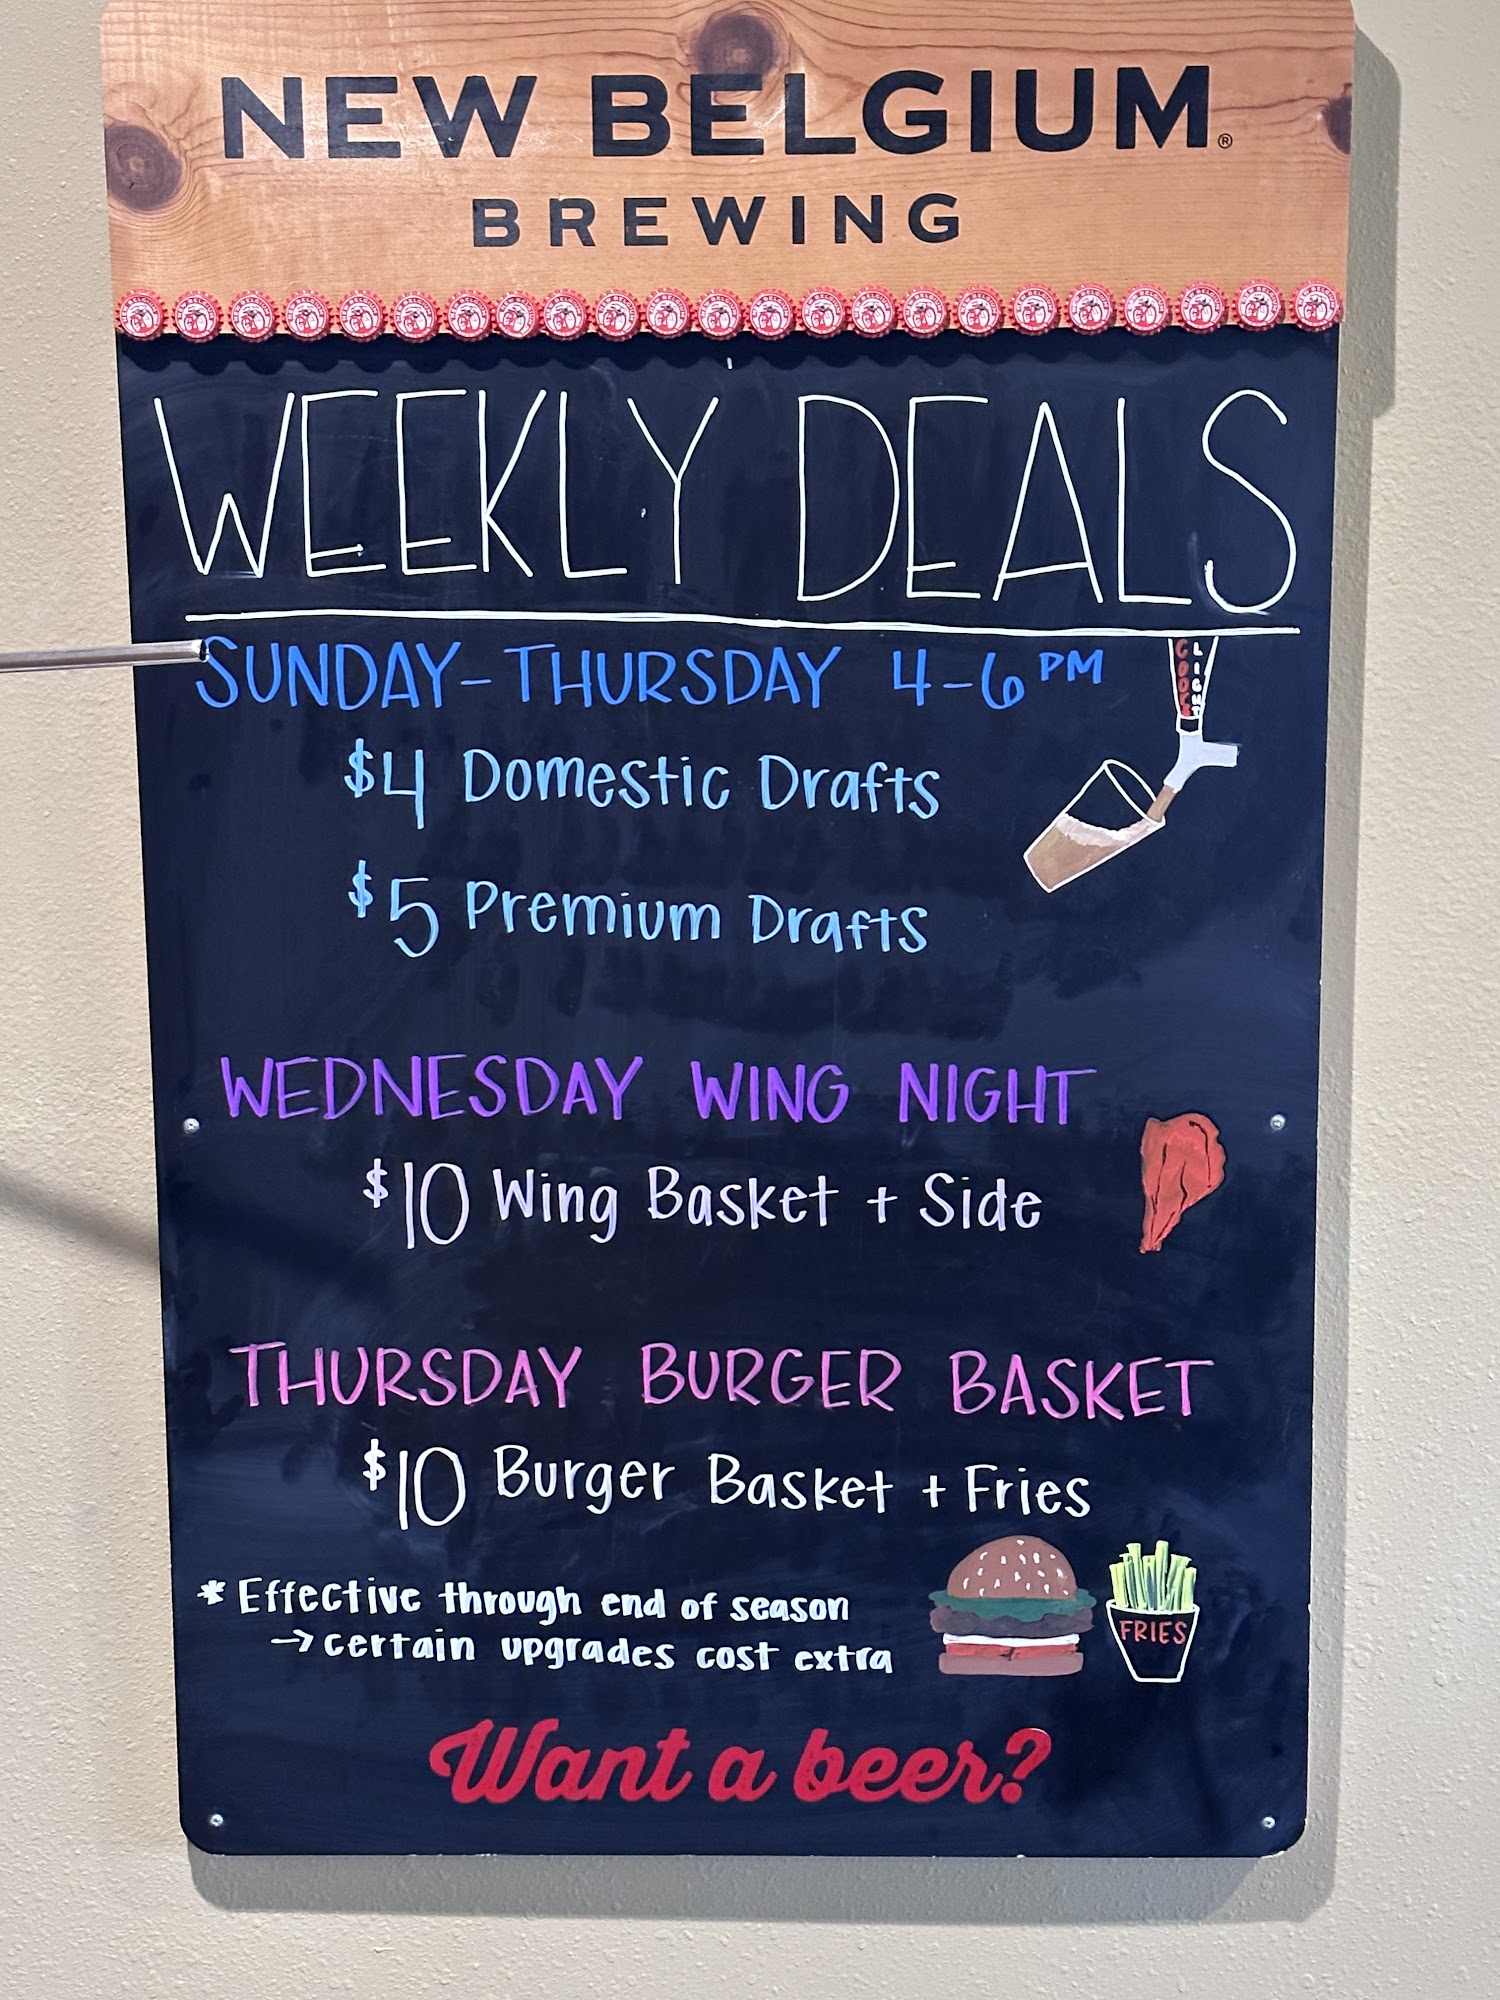 NEW BELGIUM®
BREWING
WEEKLY DEALS
SUNDAY-THURSDAY 4-6PM
COORS
LIGHT
$4 Domestic Drafts
$5 Premium Drafts
WEDNESDAY WING NIGHT
$10 Wing Basket + Side
THURSDAY BURGER BASKET
$10 Burger Basket + Fries
* Effective through end of season
→ certain upgrades cost extra
FRIES
Want a beer?